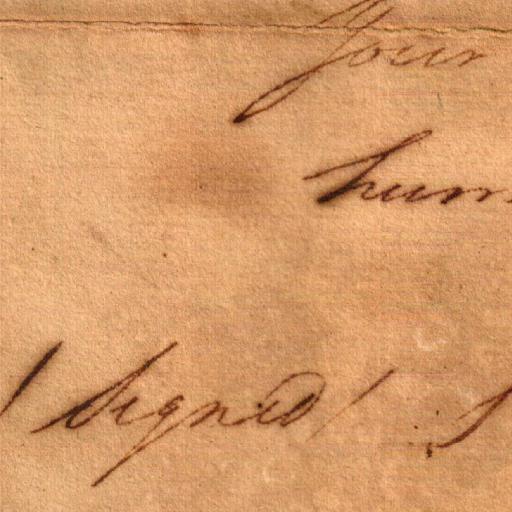 Your
hum
/ Signed /